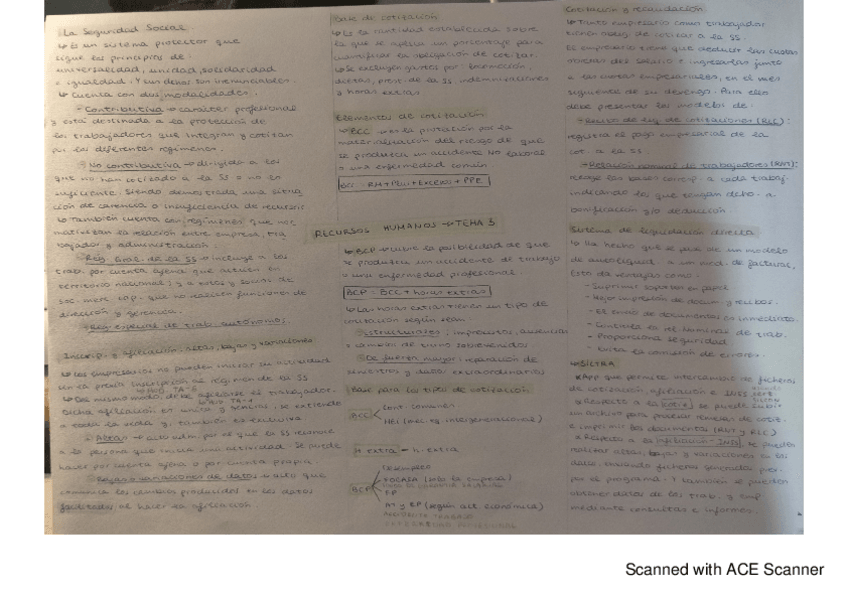 La Seguridad Social.
↳ Es un sistema protector que
sigue los principios de:
universalidad, unidad, solidaridad
e igualdad. Y sus dchos. son irrenunciables.
↳ Cuenta con dos modalidades:
- Contributiva → carácter profesional
y está destinada a la protección de
los trabajadores que integran y cotizan
por los diferentes regímenes.
- No contributiva → dirigido a los
que no han cotizado a la SS o no en
suficiente. Siendo demostrada una situa
ción de carencia o insuficiencia de recursos.
↳ También cuenta con regímenes que
la relación entre empresa, tra
bajador y administración.
- Reg. Gral. de la SS → incluye a los
trab. por cuenta ajena que actúen en
territorio nacional; y a socios de
soc. merc. cap. que no realicen funciones de
dirección y gerencia.
- Reg. especial de trab. autónomos.
Inscrip. y afiliación, altas, bajas y variaciones.
↳ Los empresarios no pueden iniciar su actividad
sin la previa inscripción al régimen de la SS
↳ Del mismo modo, debe afiliarse el trabajador.
Dicha afiliación es única y general, se extiende
a toda la vida y también es exclusiva
- Altas → acto adm. por el que la SS reconoce
a la persona que inicia una actividad. Se puede
hacer por cuenta ajena o por cuenta propia.
variaciones de datos → acto que
comunica los cambios producidos en los datos
facilitados al hacer la afiliación
Base de cotización
↳ Es la cantidad establecida sobre
la que se aplica un porcentaje para
cuantificar la obligación de cotizar.
↳ Se excluyen gastos por locomoción,
dietas, prest. de la SS, indemnizaciones
y horas extras.
Elementos de cotización
↳ BCC → es la prestación por la
materialización del riesgo de que
se produzca un accidente no laboral
o una enfermedad común
BCC: RM + PPE
RECURSOS HUMANOS → TEMA 3
↳ BCP → cubre la posibilidad de que
se produzca un accidente de trabajo
o una enfermedad profesional.
BCP = BCC + horas extras
↳ Las horas extras tienen un tipo de
cotización según sean:
- Estructurales: imprevistos, ausencias
o cambios de turno
- De fuerza mayor: reparación de
siniestros y daños extraordinarios
Base para los tipos de cotización
BCC
Cont. comunes
MEI (mec. eq. intergeneracional)
H extra - h. extra
BCP
Desempleo
FOGASA (solo la empresa)
FP
AT y EP (según act. económica)
Cotización y recaudación
↳ Tanto empresario como trabajador
tienen oblig. de cotizar a la SS.
El empresario tiene que deducir las cuotas
del salario e ingresarlas junto
a las cuotas empresariales, en el mes
siguiente de su devengo. Para ello
debe presentar los modelos de:
- Recibo de liq. de cotizaciones (RLC):
registra el pago empresarial de la
cot. a la SS.
- Relación nominal de trabajadores (RNT):
recoge las bases corresp. a cada trabaj.
indicando los que tengan dcho. a
bonificación y/o deducción.
Sistema de liquidación directa
↳ Ha hecho que se pase de un modelo
de autoliquid. a un mod. de facturas.
Esto da ventajas como:
- Suprimir soportes en papel.
- Mejor impresión de docum. y recibos.
- El envío de documentos es inmediato.
- Controla la nóminas de trab.
- Proporciona seguridad.
- Evita la comisión de errores.
↳ SILTRA
App que permite intercambio de ficheros
de cotización, afiliación e INSS.
Respecto a la cotiz. se puede subir
un archivo para
e imprimir los documentos (RNT y RLC)
Respecto a la afiliación-INSS se pueden
realizar altas, bajas y variaciones de los
datos, enviando ficheros generados
por el programa. Y también se pueden
obtener datos de los trab. y emp
mediante consultas e informes.
Scanned with ACE Scanner